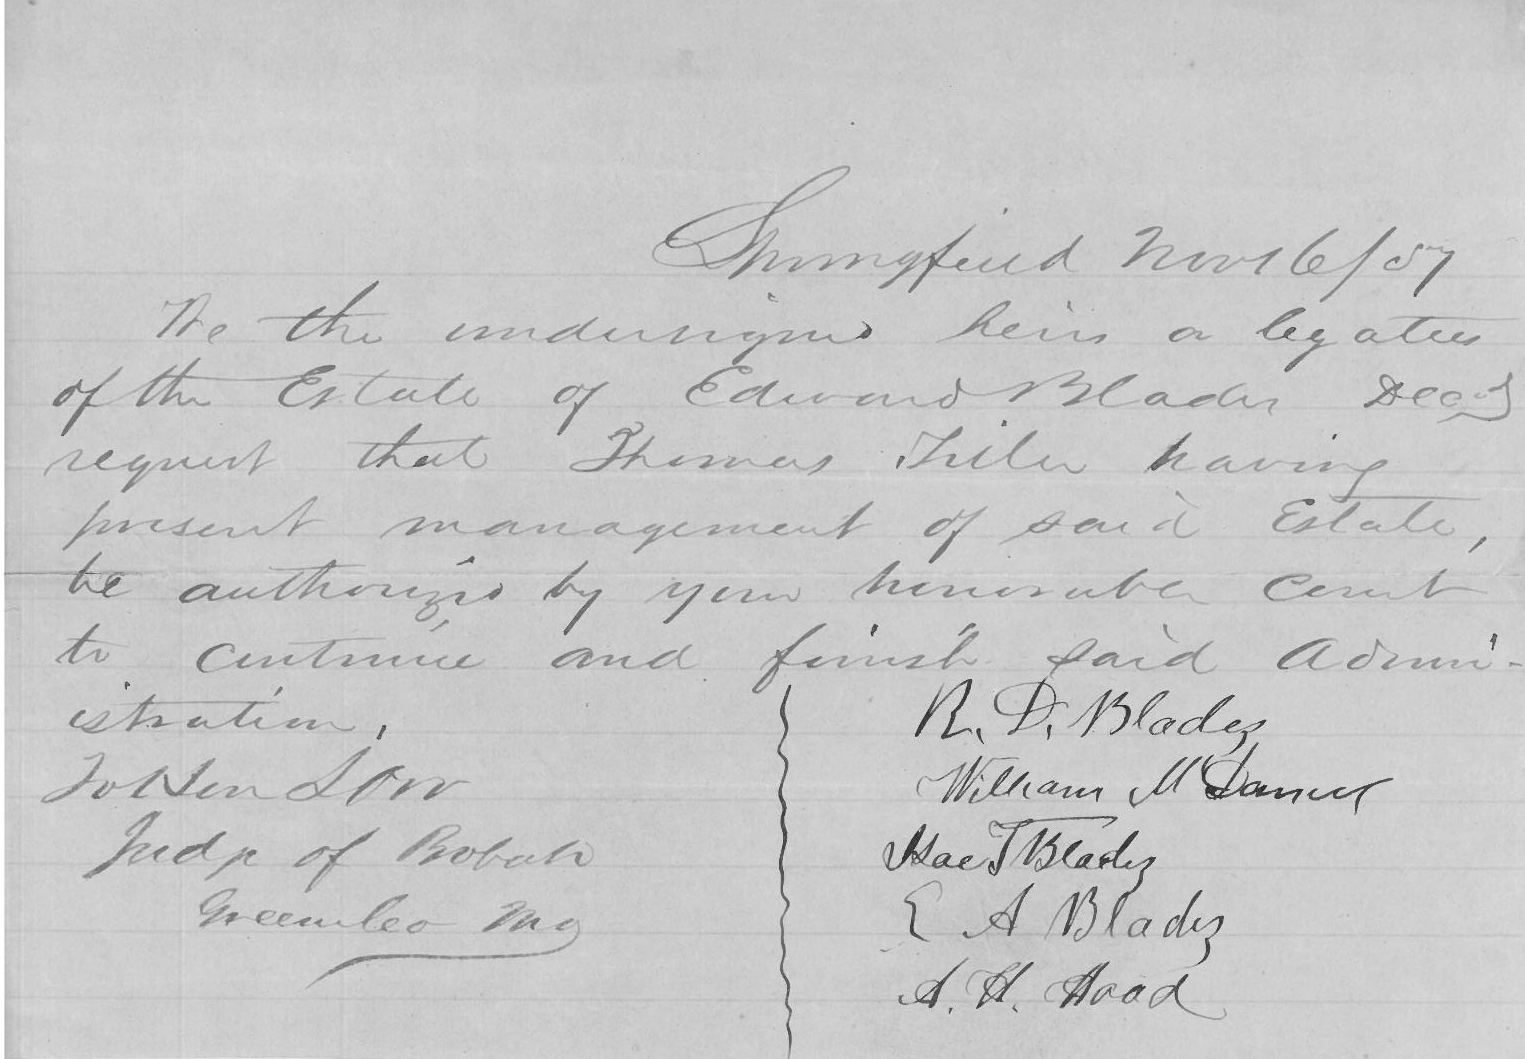 Springfield Novr 6/57
We the undersigned heirs or legatees
of the Estate of Edward Blades Decd
request that Thomas Tiller having
present management of said Estate,
be authorized by your honorable Court
to continue and finish said Admin-
istration.
R. D. Blades
William McDaniel
Isac T Blades
E A Blades
A. H. Hood
To
Judge of Probate
Green Co Mo